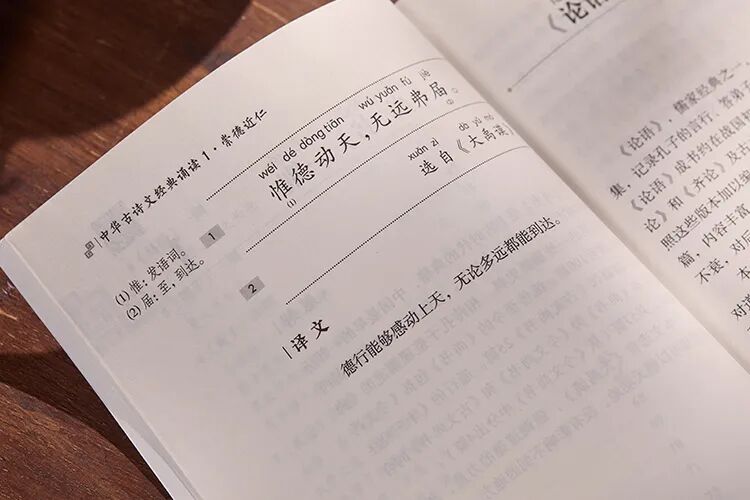 中华古诗文经典诵读1·崇德近仁
wéi dé dòng tiān wú yuǎn fú jiè
惟德动天，无远弗届。
(1)
xuǎn zì dà yǔ mó
选自《大禹谟》
1
(1) 惟：发语词。
(2) 届：至，到达。
2
译文
德行能够感动上天，无论多远都能到达。
《论语
《论语》，儒家经典之一，
记录孔子的言行、答弟
集，《论语》成书约在战国
《论语》和《齐论》及古
论》
照这些版本加以
篇，内容丰富
不衰，对后
本
对道